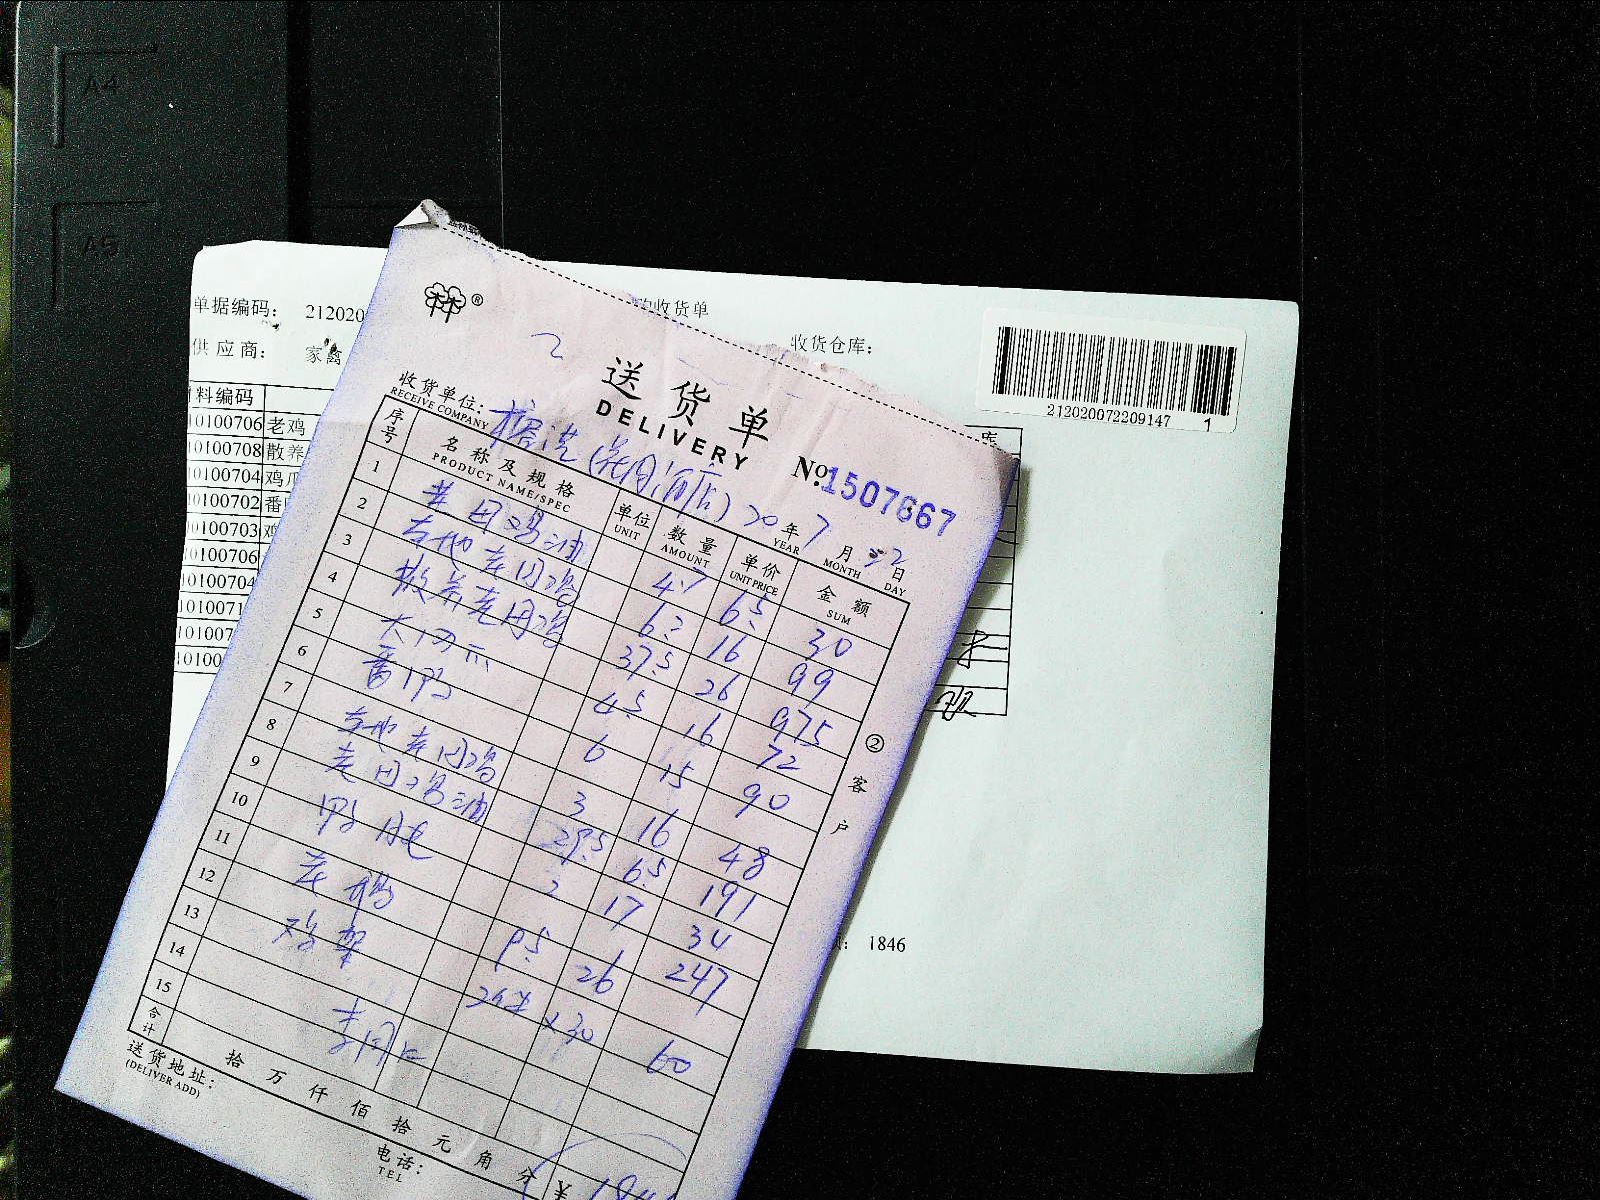 A4
A5
单据编码： 212020
购收货单
供应商： 家禽
收货仓库：
212020072209147 1
料编码
库
10100706 老鸡
10100708 散养
10100704 鸡爪
10100702 番
10100703 鸡
10100706
10100704
1010071
101007
10100
1846
林®
2
送货单
DELIVERY
收货单位：
RECEIVE COMPANY
No.1507667
20年7月22日
YEAR MONTH DAY
序号 名称及规格 单位 数量 单价 金额
PRODUCT NAME/SPEC UNIT AMOUNT UNIT PRICE SUM
1 老田鸡油 4.7 6.5 30
2 本地老田鸡 6.2 16 99
3 散养老田鸡 37.5 26 975
4 4.5 16 72
5 番鸭 6 15 90
6 本地老田鸡 3 16 48
7 老田鸡油 29.5 6.5 191
8 鸭 2 17 34
9 老鸡 9.5 26 247
10 鸡架 ×30 60
11
12
13
14
15
合计 拾 万 仟 佰 拾 元 角 分 ¥
送货地址：
(DELIVER ADD)
电话：
TEL
②客户